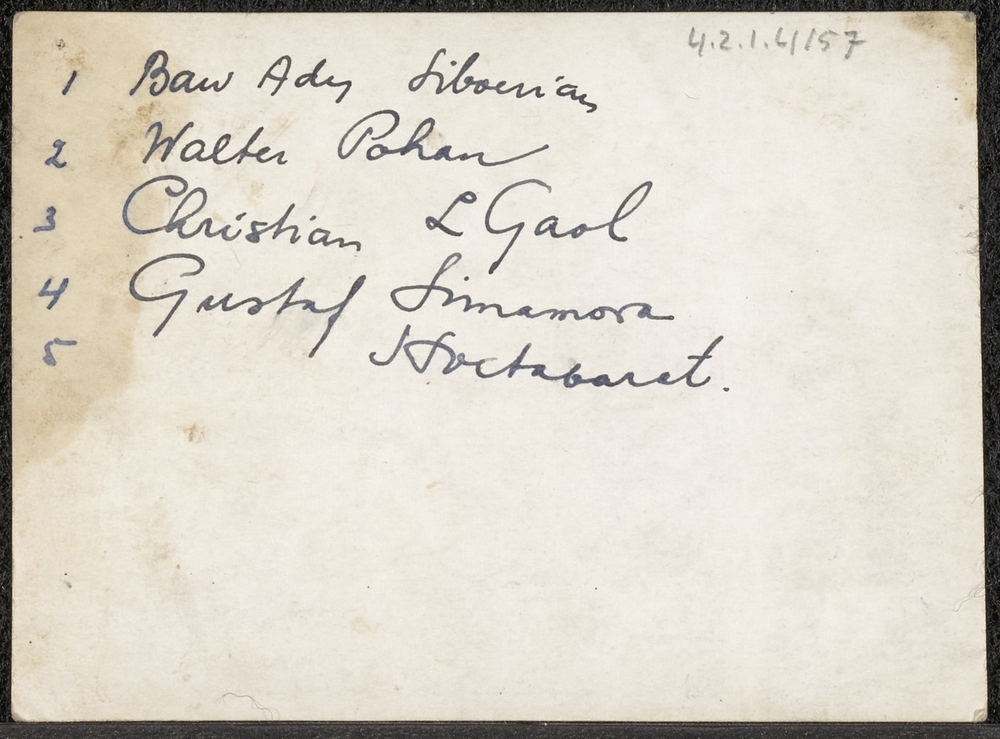 4.2.1.4/157
1 Baw Ady Siboerian
2 Walter Pohan
3 Christian L Gaol
4 Gustaf Simamora
5 Hoetabarat.